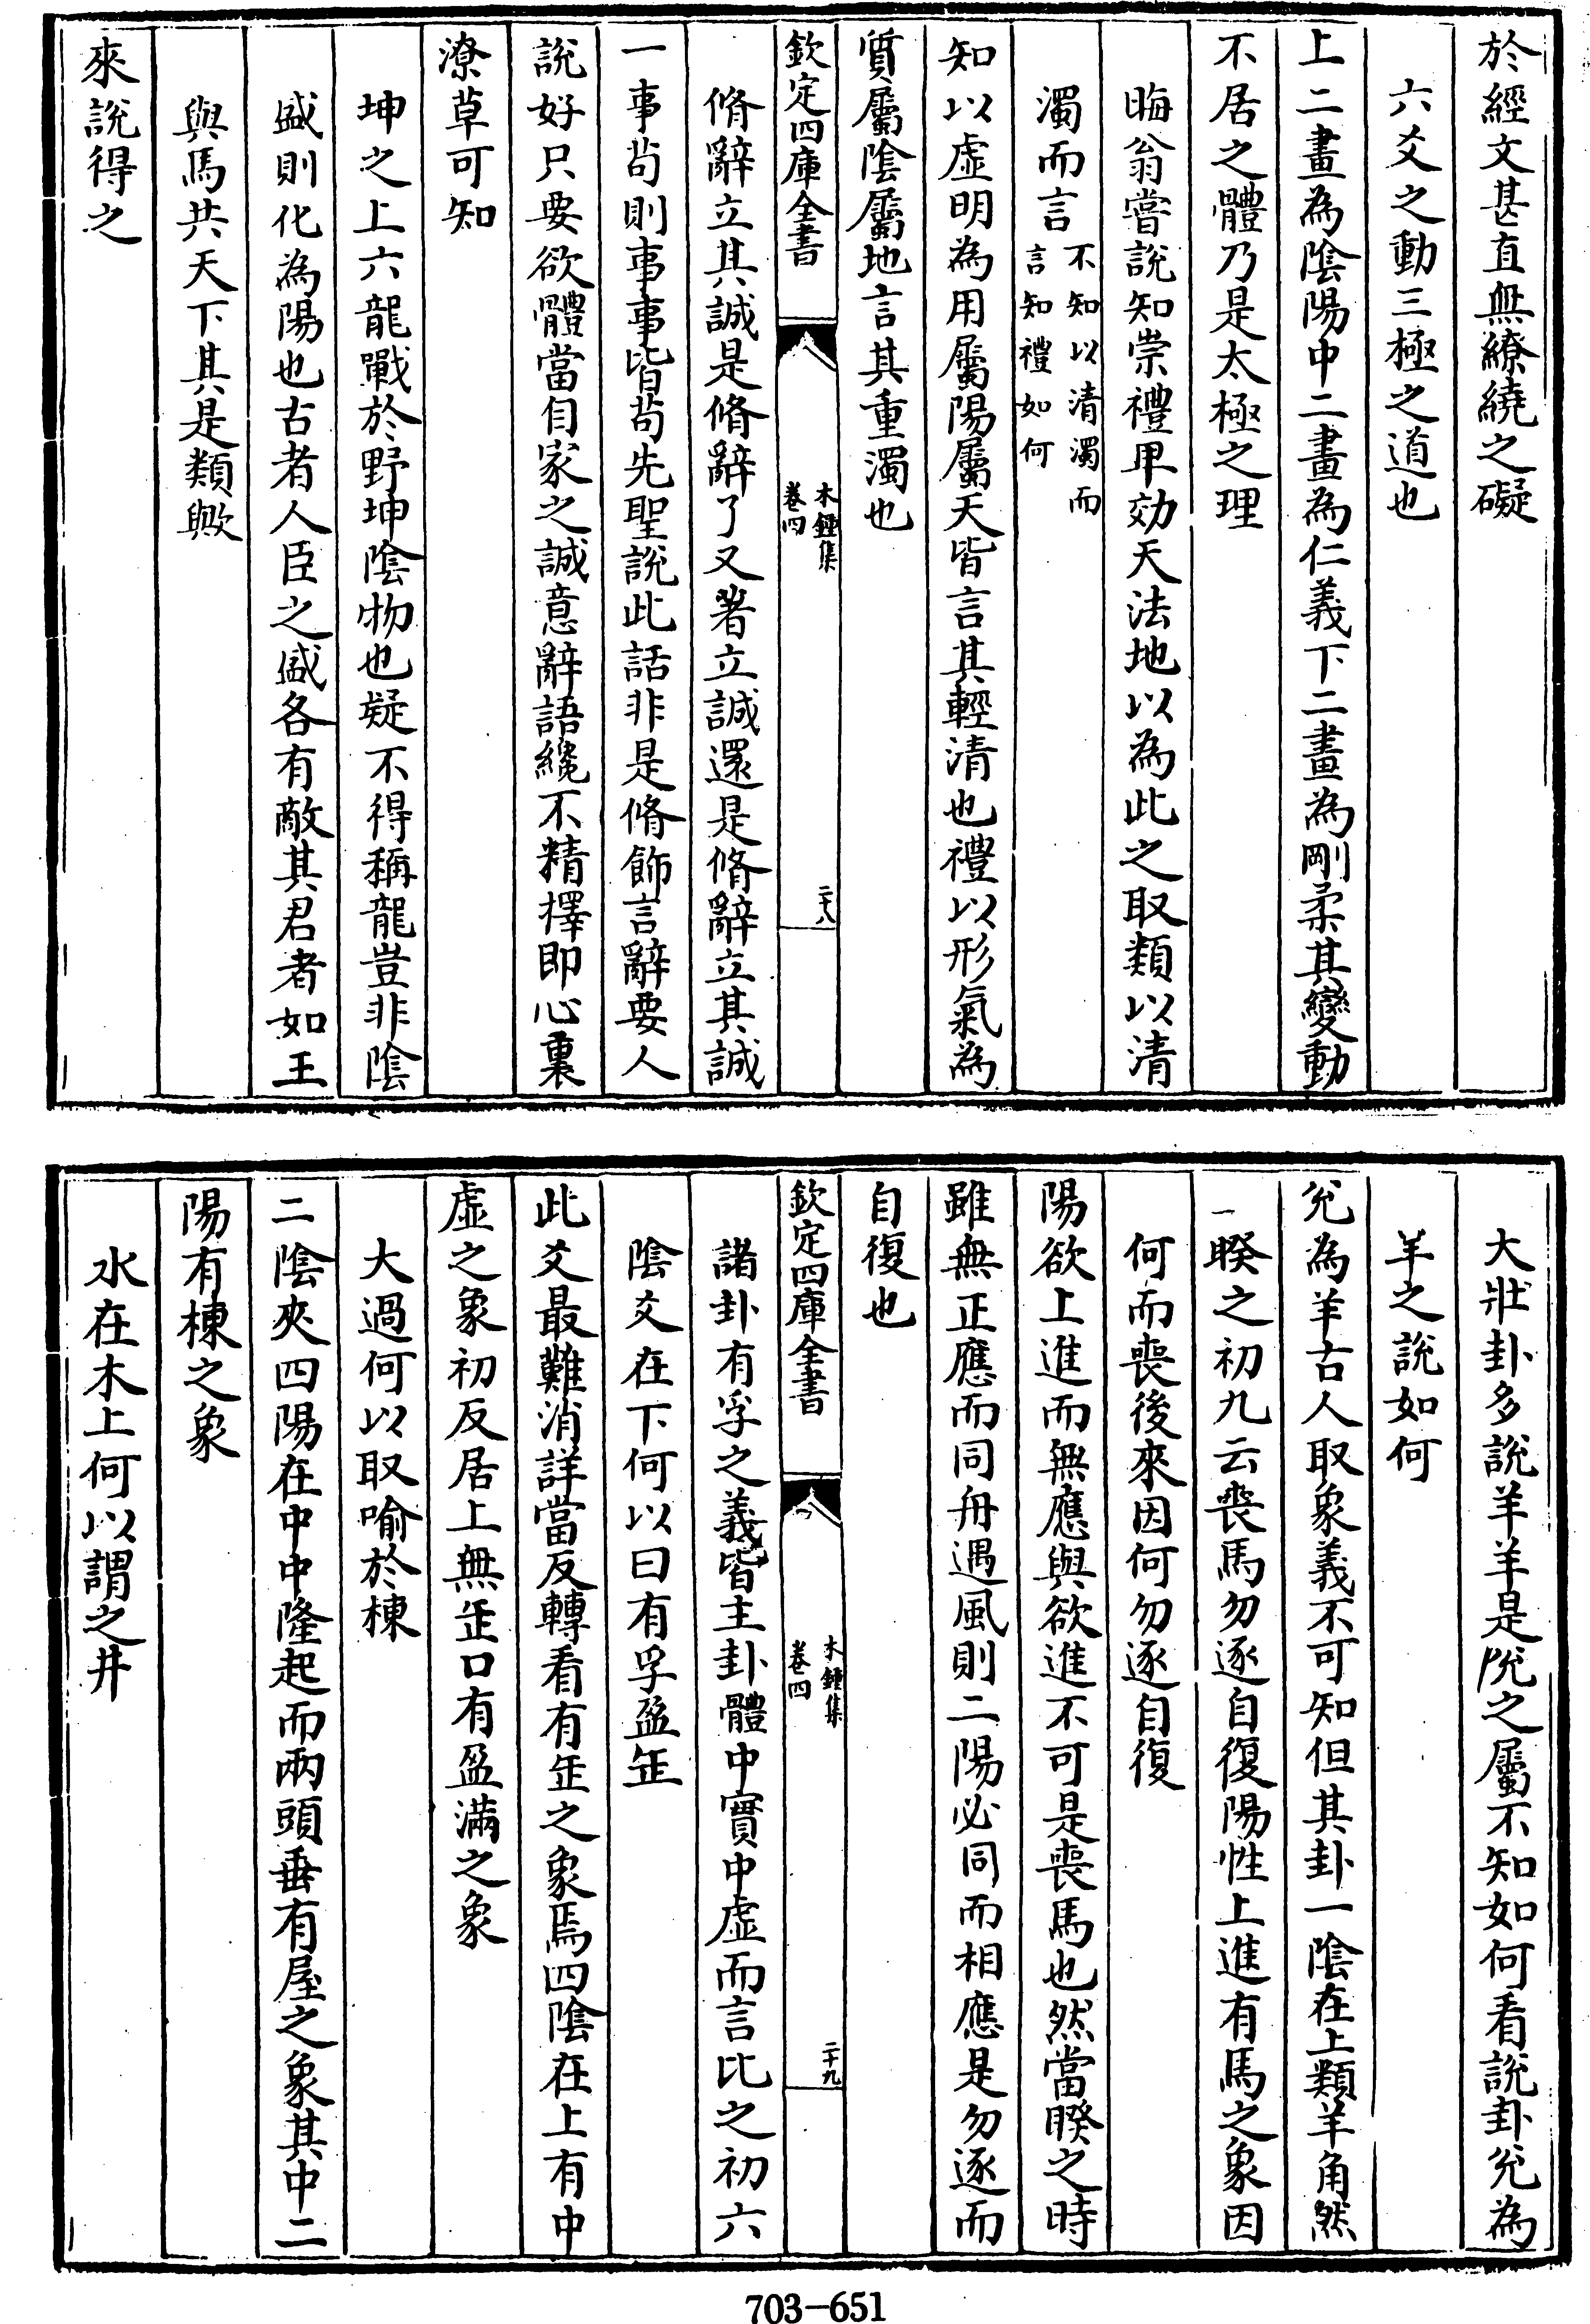 於經文甚直無繚繞之礙
六爻之動三極之道也
上二畫為陰陽中二畫為仁義下二畫為剛柔其變動
不居之體乃是太極之理
晦翁嘗說知崇禮卑効天法地以為此之取類以清
濁而言不知以清濁而言知禮如何
知以虛明為用屬陽屬天皆言其輕清也禮以形氣為
質屬陰屬地言其重濁也
欽定四庫全書
木鍾集
卷四
二十八
脩辭立其誠是脩辭了又著立誠還是脩辭立其誠
一事茍則事事皆茍先聖說此話非是脩飾言辭要人
說好只要欲體當自家之誠意辭語纔不精擇即心裏
潦草可知
坤之上六龍戰於野坤陰物也疑不得稱龍豈非陰
盛則化為陽也古者人臣之盛各有敵其君者如王
與馬共天下其是類歟
來說得之
大壯卦多說羊羊是兊之屬不知如何看說卦兊為
羊之說如何
兊為羊古人取象義不可知但其卦一陰在上類羊角然
一睽之初九云喪馬勿逐自復陽性上進有馬之象因
何而喪後來因何勿逐自復
陽欲上進而無應與欲進不可是喪馬也然當睽之時
雖無正應而同舟遇風則二陽必同而相應是勿逐而
自復也
欽定四庫全書
木鍾集
卷四
二十九
諸卦有孚之義皆主卦體中實中虛而言比之初六
陰爻在下何以曰有孚盈缶
此爻最難消詳當反轉看有缶之象焉四陰在上有中
虛之象初反居上無缶口有盈滿之象
大過何以取喻於棟
二陰夾四陽在中中隆起而兩頭垂有屋之象其中二
陽有棟之象
水在木上何以謂之井
703-651